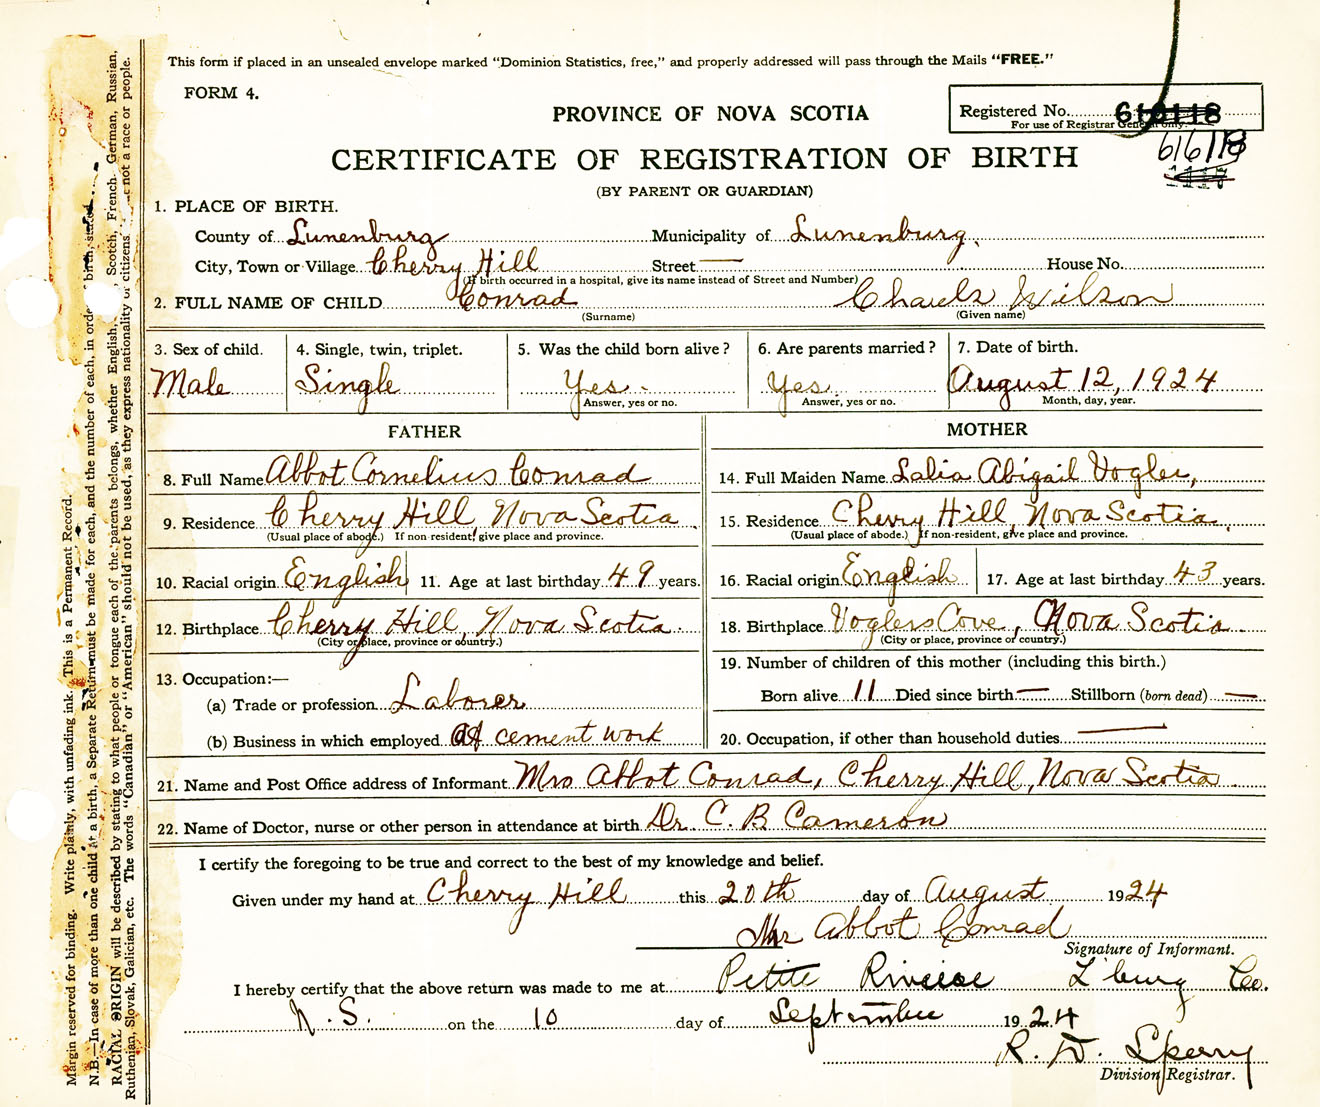 This form if placed in an unsealed envelope marked "Dominion Statistics, free," and properly addressed will pass through the Mails "FREE."
FORM 4.
PROVINCE OF NOVA SCOTIA
Registered No. 616118
For use of Registrar General only.
616118
CERTIFICATE OF REGISTRATION OF BIRTH
(BY PARENT OR GUARDIAN)
1. PLACE OF BIRTH.
County of Lunenburg Municipality of Lunenburg.
City, Town or Village Cherry Hill Street — House No.
(If birth occurred in a hospital, give its name instead of Street and Number)
2. FULL NAME OF CHILD Conrad Charels Wilson
(Surname) (Given name)
3. Sex of child. 4. Single, twin, triplet. 5. Was the child born alive? 6. Are parents married? 7. Date of birth.
Male Single Yes. Yes. August 12, 1924
Answer, yes or no. Answer, yes or no. Month, day, year.
FATHER MOTHER
8. Full Name Abbot Cornelius Conrad 14. Full Maiden Name Lalia Abigail Vogler,
9. Residence Cherry Hill, Nova Scotia. 15. Residence Cherry Hill, Nova Scotia.
(Usual place of abode.) If non-resident, give place and province. (Usual place of abode.) If non-resident, give place and province.
10. Racial origin English 11. Age at last birthday 49 years. 16. Racial origin English 17. Age at last birthday 43 years.
12. Birthplace Cherry Hill, Nova Scotia. 18. Birthplace Voglers Cove, Nova Scotia.
(City or place, province or country.) (City or place, province or country.)
19. Number of children of this mother (including this birth.)
13. Occupation:—
(a) Trade or profession Laborer Born alive 11 Died since birth — Stillborn (born dead) —
(b) Business in which employed at cement work 20. Occupation, if other than household duties —
21. Name and Post Office address of Informant Mrs Abbot Conrad, Cherry Hill, Nova Scotia.
22. Name of Doctor, nurse or other person in attendance at birth Dr. C. B Cameron
I certify the foregoing to be true and correct to the best of my knowledge and belief.
Given under my hand at Cherry Hill this 20th day of August 1924
Mr Abbot Conrad
Signature of Informant.
I hereby certify that the above return was made to me at Petite Riveise L'burg Co.
N.S. on the 10 day of September 1924
R. D. Sperry
Division Registrar.
Margin reserved for binding. Write plainly, with unfading ink. This is a Permanent Record.
N.B.—In case of more than one child at a birth, a Separate Return must be made for each, and the number of each, in order of birth, stated
RACIAL ORIGIN will be described by stating to what people or tongue each of the parents belongs, whether English, Scotch, French, German, Russian,
Ruthenian, Slovak, Galician, etc. The words "Canadian" or "American" should not be used, as they express nationality or citizens not a race or people.